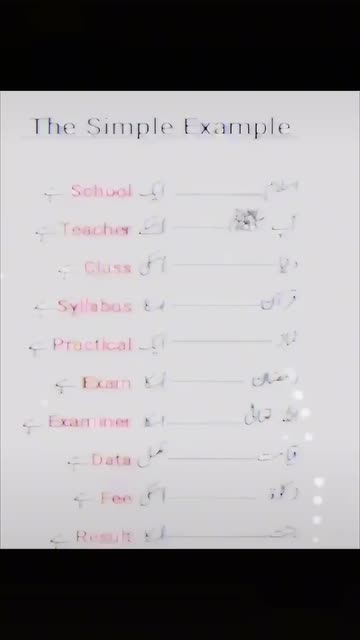 The Simple Example
اسلام ایک School ہے
آپ ﷺ اسکے Teacher ہے
دنیا اسکی Class ہے
قرآن اسکا Syllabus ہے
نماز ایک Practical ہے
رمضان اسکا Exam ہے
اللہ تعالیٰ اسکا Examiner ہے
قیامت Data ہے
زکوٰۃ اسکی Fee ہے
جنت اسکا Result ہے